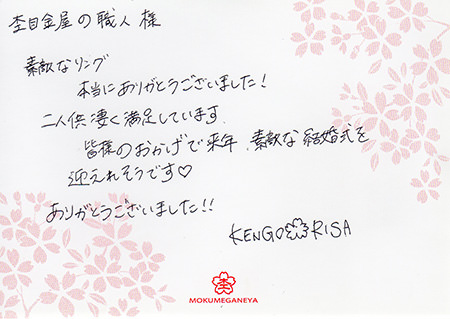 杢目金屋の職人 様
素敵なリング
本当にありがとうございました!
二人供凄く満足しています.
皆様のおかげで来年、素敵な結婚式を
迎えれそうです♡
ありがとうございました!!
KENGO RISA
MOKUMEGANEYA